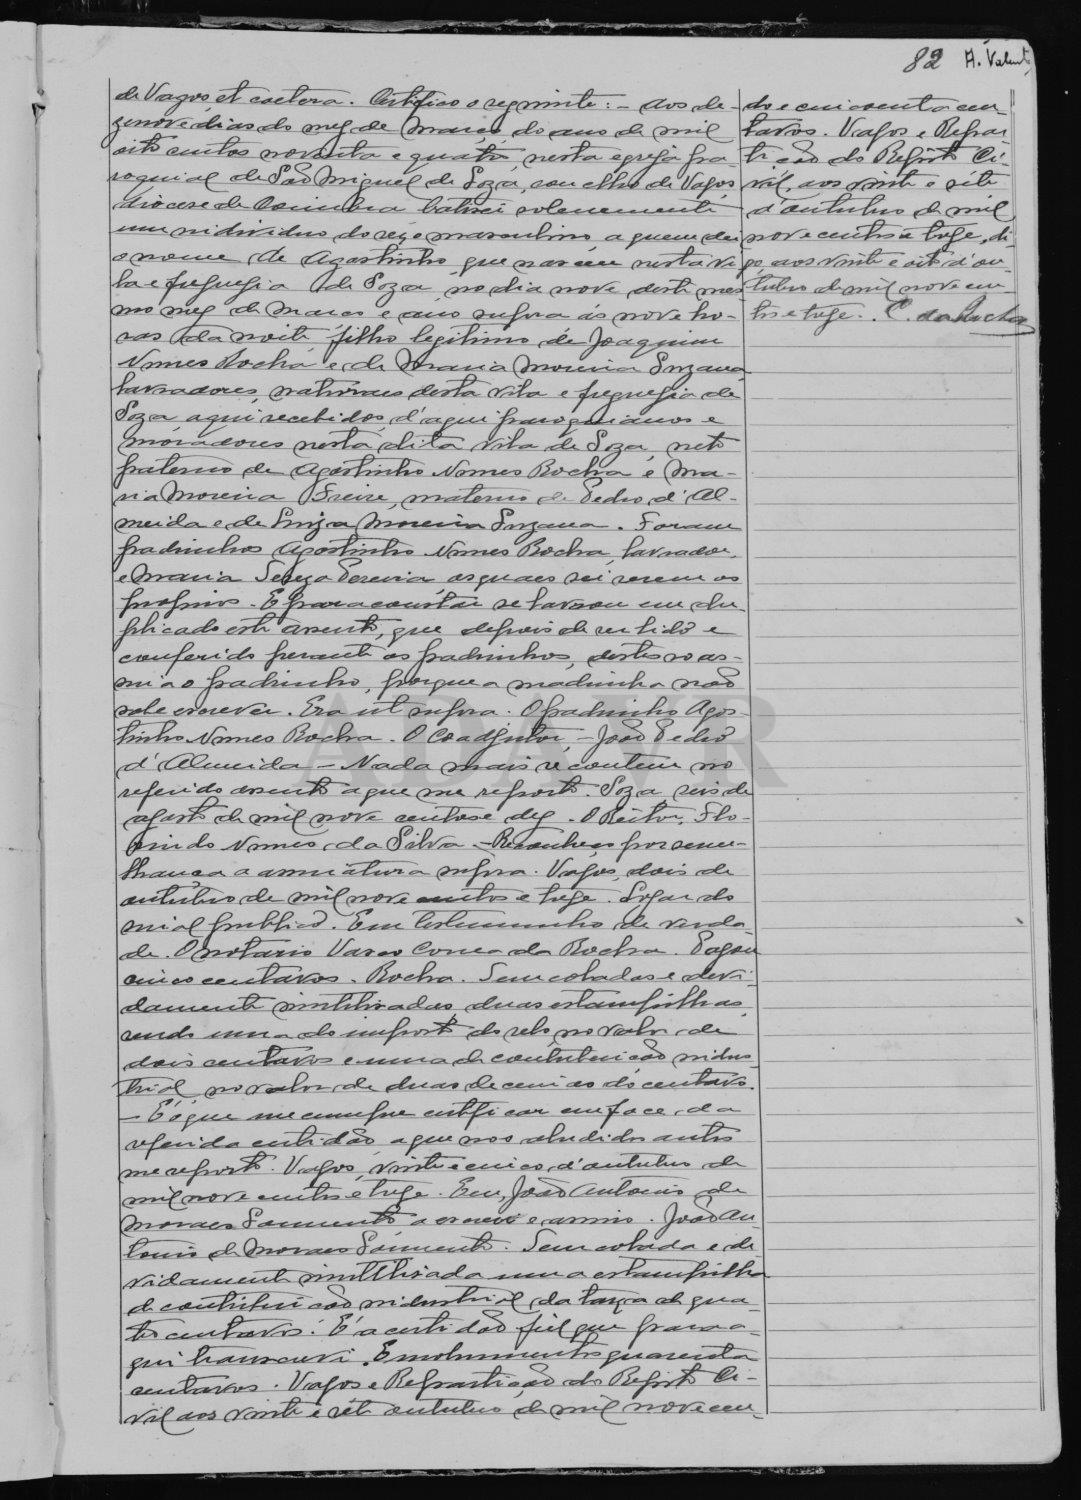 82 A. Valente
de Vagos, et coetera. Certifico o seguinte: - Aos de-
zenove dias do mez de Março do ano de mil
oito centos noventa e quatro, nesta egreja pa
roquial de São Miguel de Soza, concelho de Vagos,
diocese de Coimbra batisei solenemente
um individuo do sexo masculino, a quem dei
o nome de Agostinho, que nasceu nesta vi
la e freguesia de Soza, no dia nove deste mes
mo mez de Março e ano supra ás nove ho-
ras da noite, filho legitimo de Joaquim
Nunes Rocha e de Maria Moreira Suzana,
lavradores, naturaes desta vila e freguesia de
Soza, aqui recebidos, d'aqui paroquianos e
moradores nesta dita vila de Soza, neto
paterno de Agostinho Nunes Rocha e Ma-
ria Moreira Freire, materno de Pedro d'Al-
meida e de Luiza Moreira Suzana. Foram
padrinhos Agostinho Nunes Rocha, lavrador,
e Maria Pereira, os quaes sei serem os
proprios. E para constar se lavrou em du-
plicado este assento, que depois de ser lido e
conferido perante os padrinhos, destes só as-
sina o padrinho, porque a madrinha não
sabe escrever. Era ut supra. O padrinho Agos-
tinho Nunes Rocha. O Coadjutor, - João Pedro
d'Almeida - Nada mais se contem no
referido assento a que me reporto. Soza, seis de
agosto de mil nove centos e dez. O Reitor, Flo-
rindo Nunes da Silva. - Reconheço por seme-
lhança a assinatura supra. Vagos, dois de
outubro de mil nove centos e treze. Logar do
sinal publico. Em testemunho de verda-
de. O notario Vasco Correa da Rocha. Pagou
cinco centavos. Rocha. Sem coladas e devi-
damente inutilisadas duas estampilhas,
sendo uma do imposto do selo, no valor de
dois centavos e uma de contribuição indus
trial, no valor de duas decimas de centavo.
- É o que me cumpre certificar em face da
referida certidão, a que nos aludidos autos
me reporto. Vagos, vinte e cinco d'outubro de
mil nove centos e treze. Eu, João Antonio de
Moraes Sarmento o escrevi e assino. João An-
tonio de Moraes Sarmento. Sem colada e de-
vidamente inutilisada uma estampilha
de contribuição industrial, da taxa de qua-
tro centavos. É a certidão fiel que para a-
qui transcrevi. Emolumentos quarenta
centavos. Vagos e Repartição do Registo Ci-
vil aos vinte e sete outubro de mil nove cen-
do e cincoenta cen-
tavos. Vagos e Repar
tição do Registo Ci-
vil, aos vinte e sete
d'outubro de mil
nove centos e treze, di-
go, aos vinte e oito d'ou-
tubro de mil nove cen-
tos e treze. C. da Rocha
ADAVR